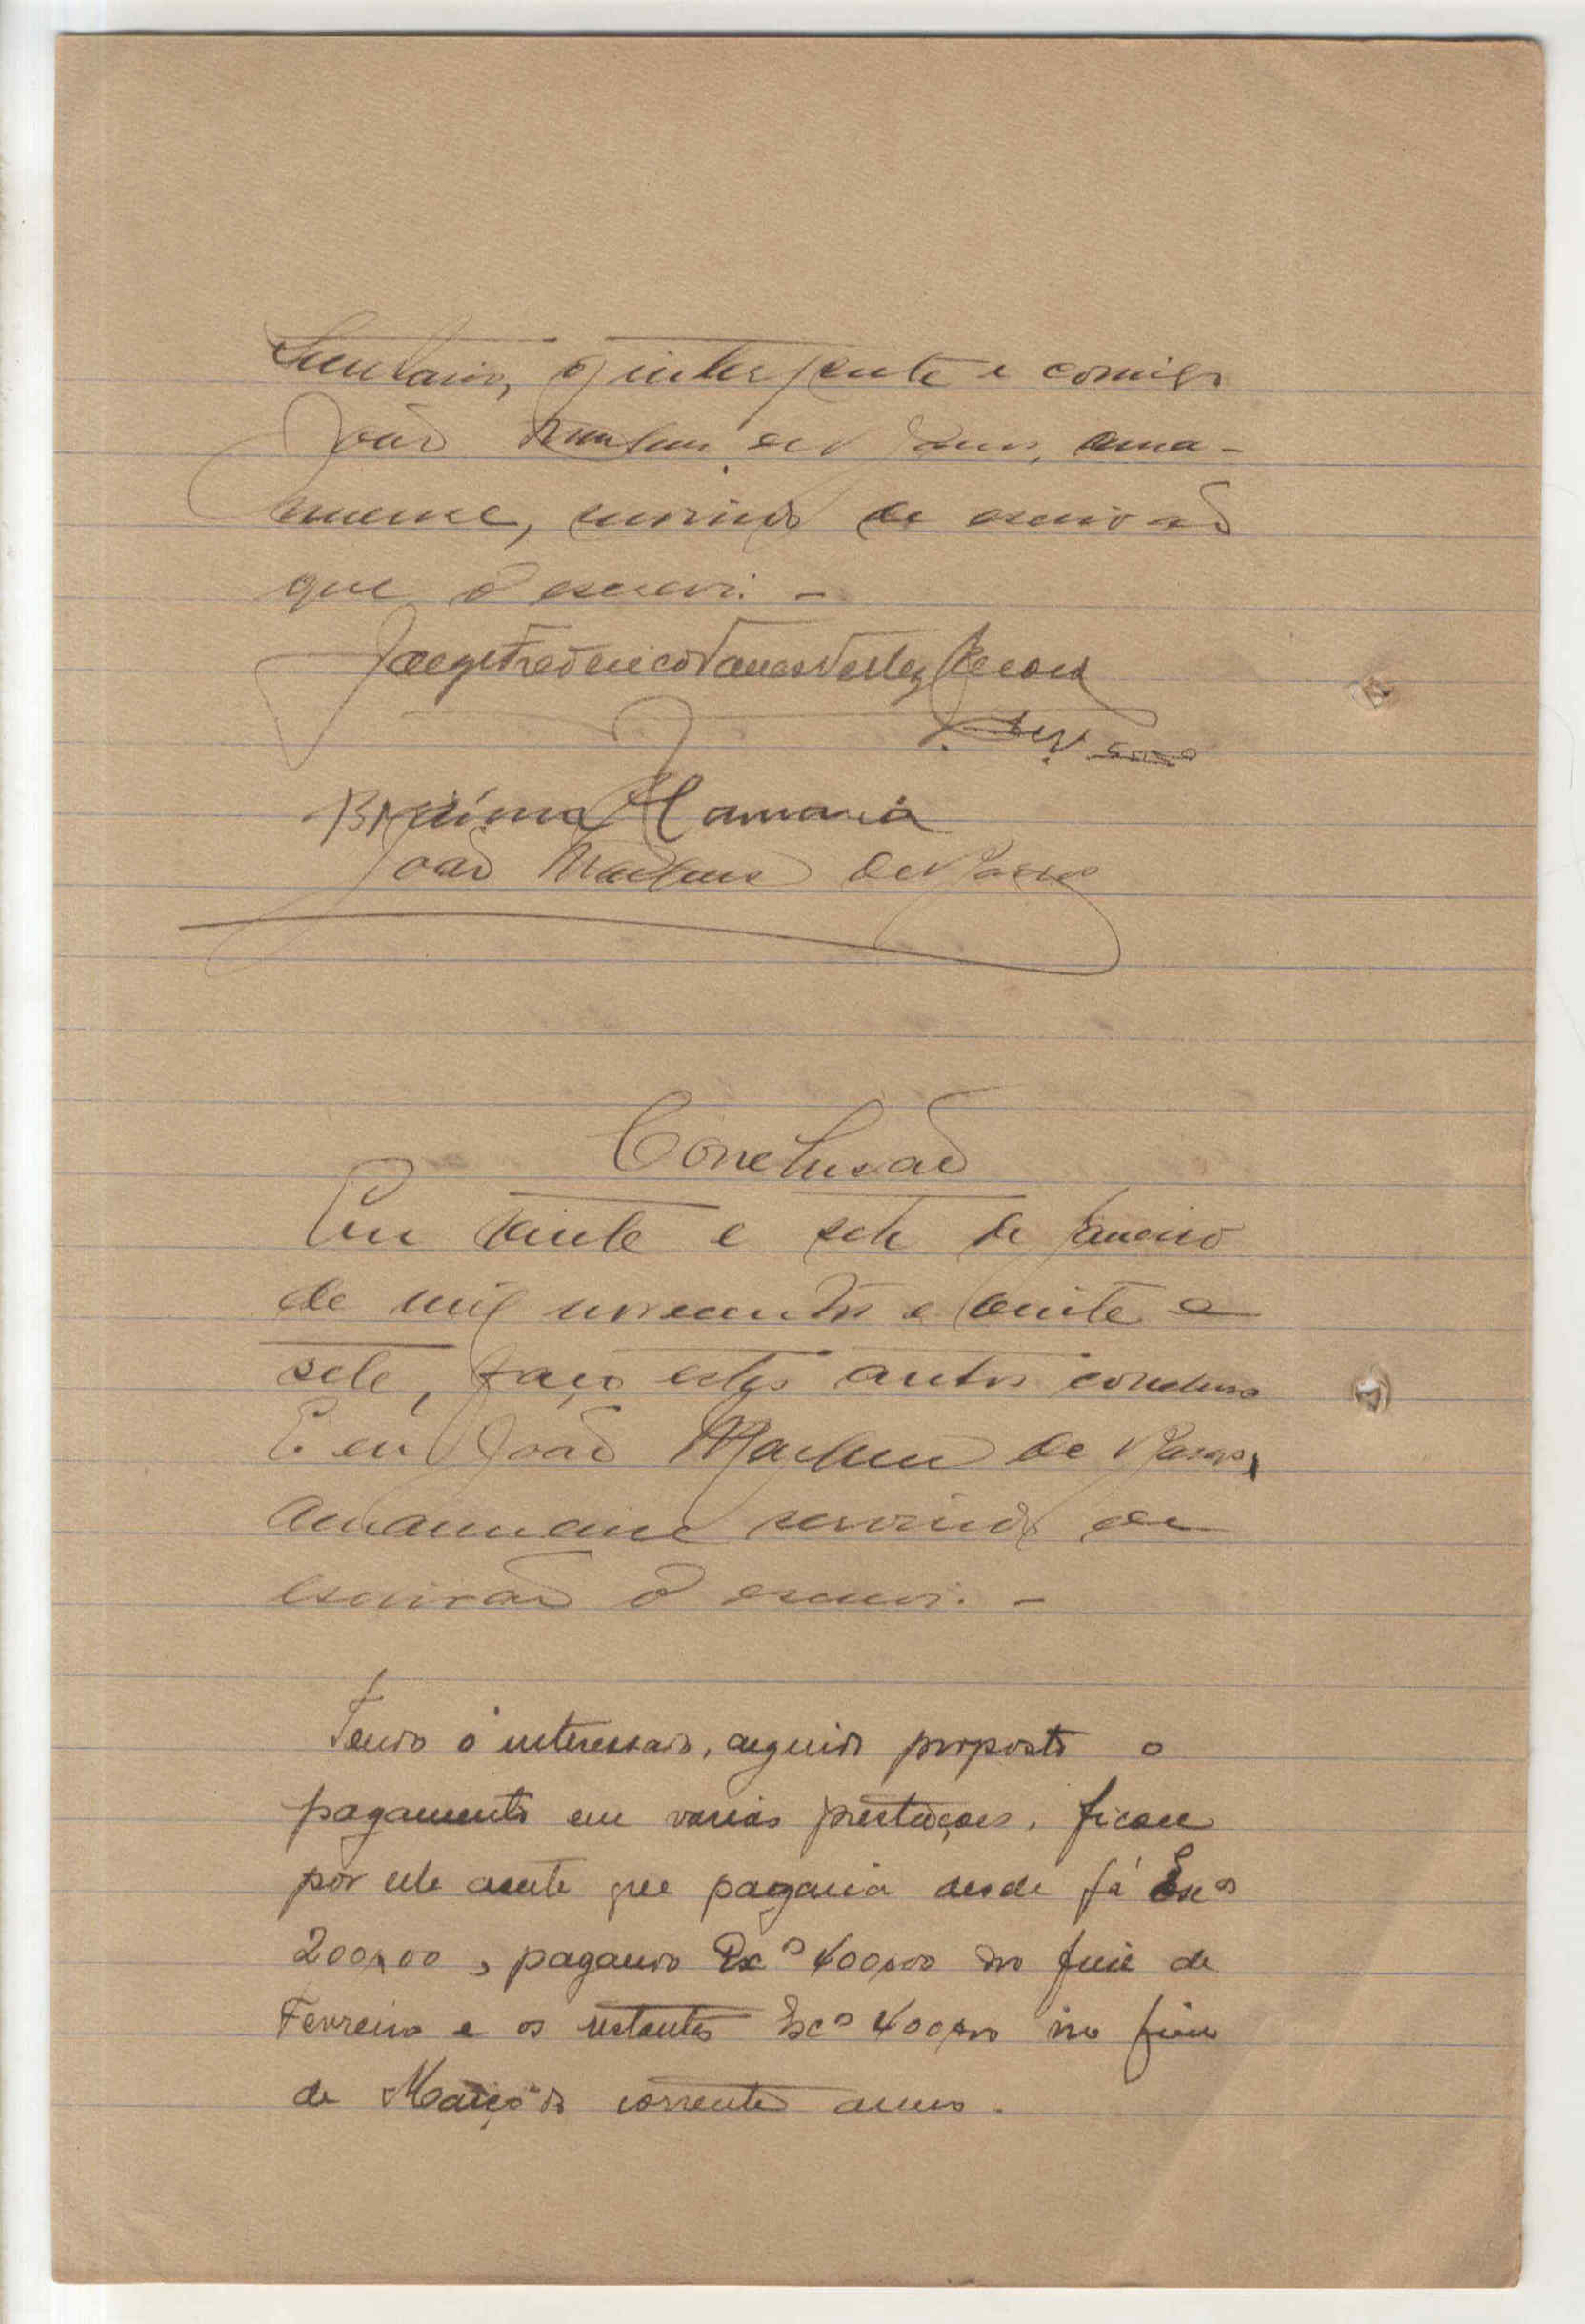 e comigo
João Martins de Passos, ama-
nuense, servindo de escrivão
que o escrevi. -
Jorge Frederico Velez
Braima Camará
João Martins de Passos
Conclusão
Em vinte e sete de Janeiro
de mil novecentos e vinte e
sete, faço estes autos conclusos
E eu João Martins de Passos,
amanuense servindo de
escrivão o escrevi. -
Tendo o interessado, arguido proposto o
pagamento em varias prestações, ficou
por ele aceite que pagaria desde já Escos
200$00, pagando Esco 400$00 no fim de
Fevreiro e os restantes Esco 400$00 no fim
de Março do corrente anno.